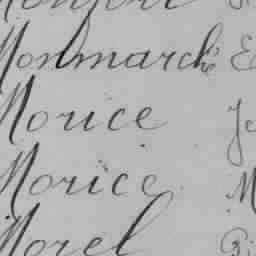 Monmarché E
Morice Je
Morice M
Morel Pi